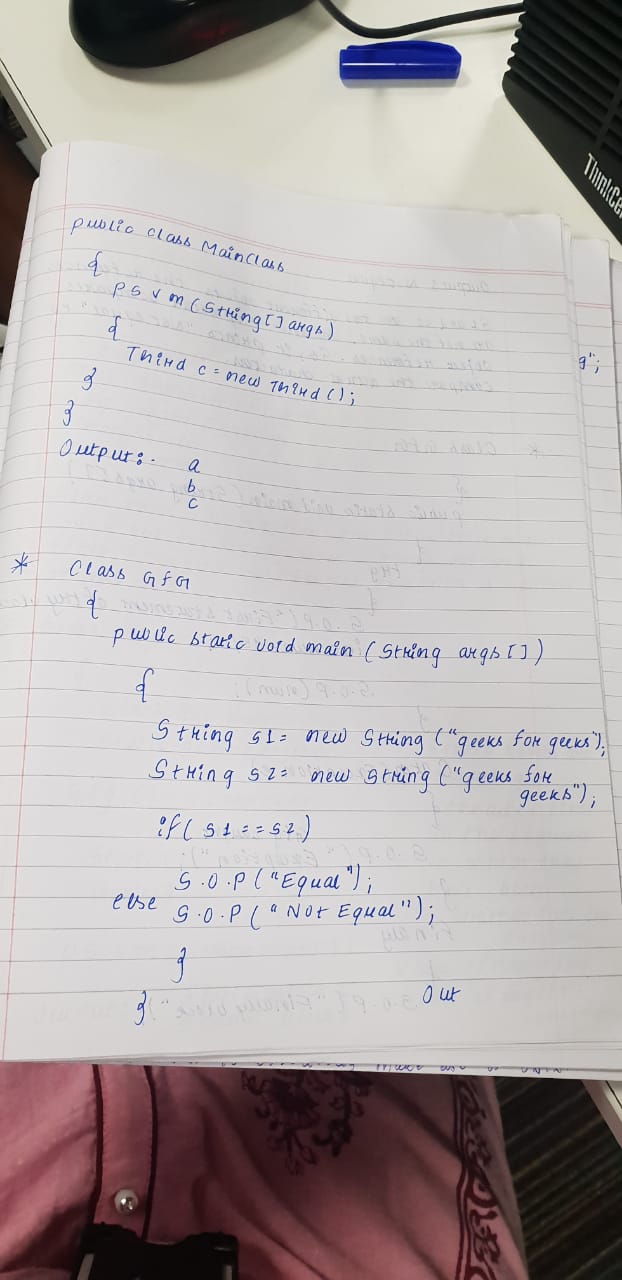 public class MainClass
{
P S V m (String [] args)
{
Third c = new Third ();
}
}
Output:-
a
b
c
* Class GfG
{
public static void main (String args [])
{
String s1 = new String ("geeks for geeks");
String s2 = new String ("geeks for
geeks");
if( s1 == s2)
S.O.P ("Equal");
else
S.O.P ("Not Equal");
}
}
Out
g";
ThinkCe